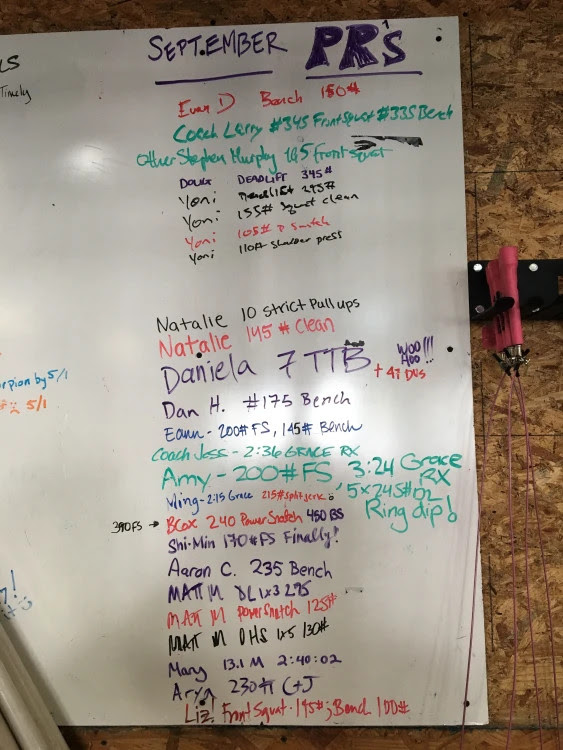 LS
Timely
SEPTEMBER PR's
Evan D Bench 150#
Coach Larry #345 Front Squat #335 Bench
Other Stephen Murphy 185 front squat
DOUG DEADLIFT 345#
Yoni Deadlift 295#
Yoni 155# Squat clean
Yoni 105# Snatch
Yoni 110# shoulder press
Natalie 10 strict Pull ups
Natalie 145# Clean
Daniela 7 TTB WOO HOO!!!
+ 47 DUS
Dan H. #175 Bench
rpion by 5/1
5/1
Eann - 200# FS, 145# Bench
Coach Jess - 2:36 GRACE RX
Amy - 200# FS, 3:24 Grace RX
5x245# DL
Ring dip!
Ming - 2:15 Grace 215# split jerk
390 FS → BCox 240 Power Snatch 450 BS
Shi-Min 170# FS Finally!
Aaron C. 235 Bench
MATT M DL 1x3 295
MATT M Power Snatch 125#
MATT M OHS 1x5 130#
Mary 13.1 M 2:40:02
Arya 230# C+J
Liz! Front Squat - 145#; Bench 100#